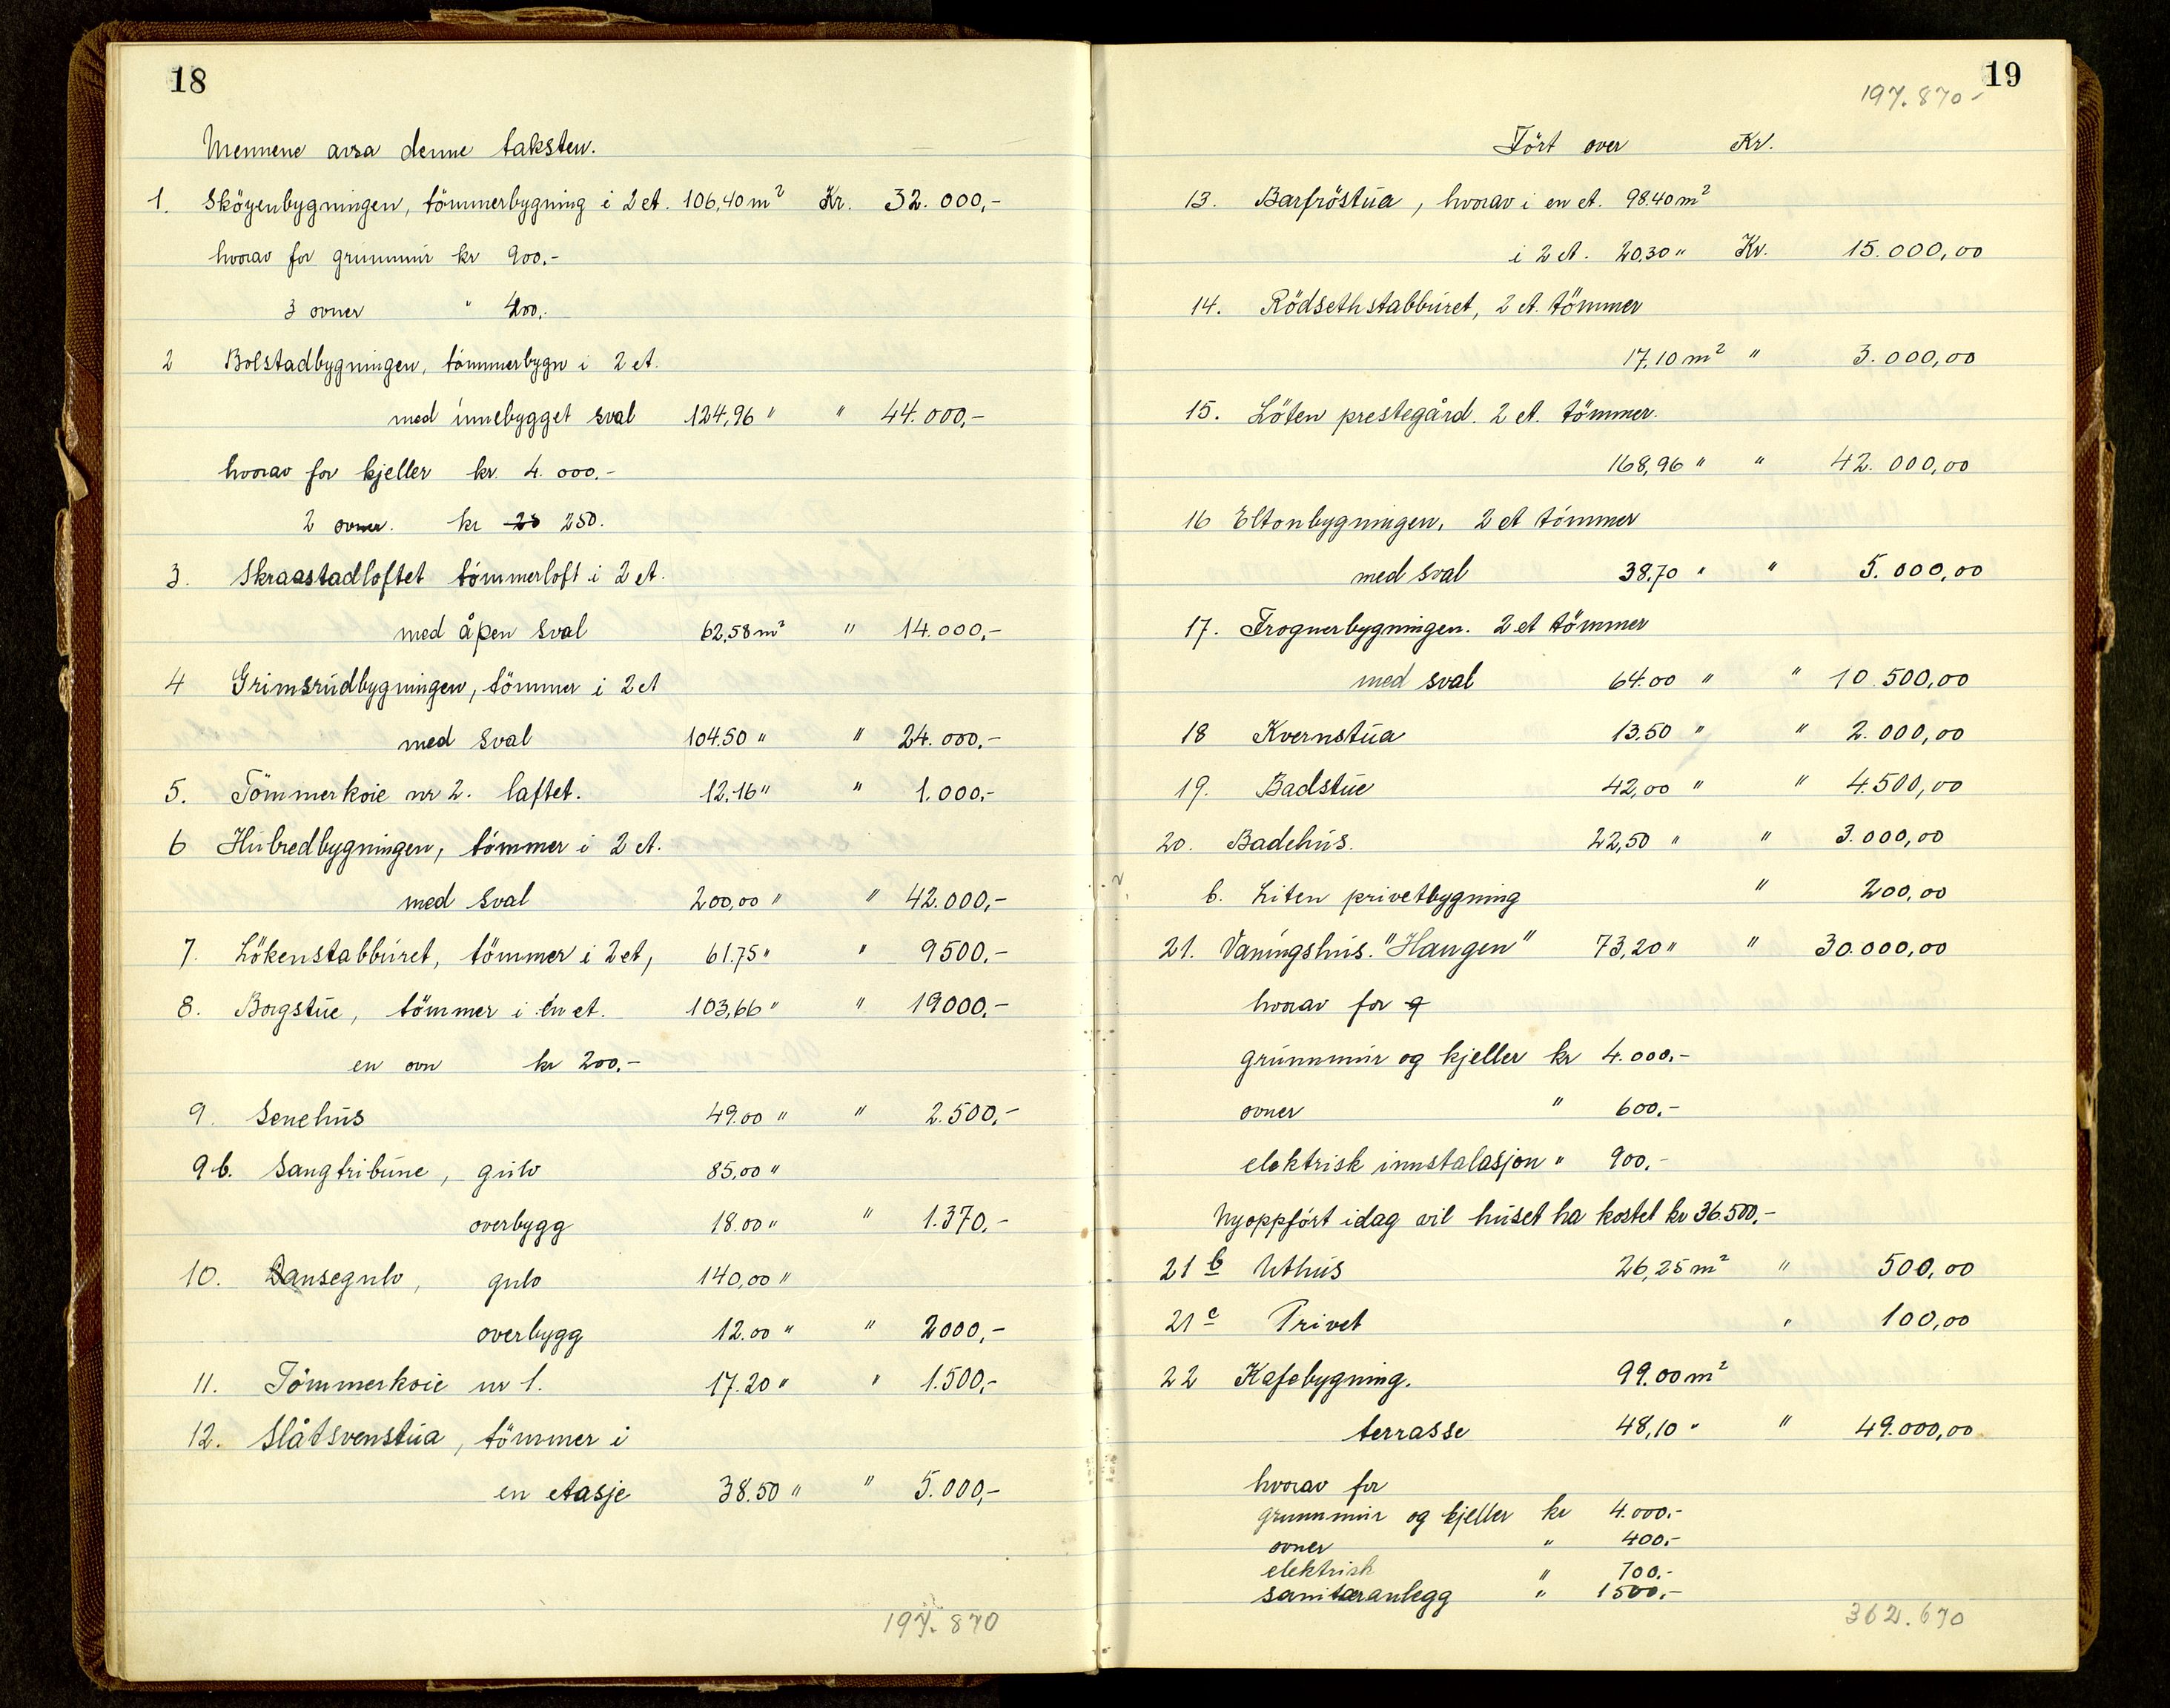 18
Mennene avsa denne taksten.
1. Sköyenbygningen, tömmerbygning i 2 et. 106,40 m² Kr. 32.000,-
hvorav for grunnmur kr 900.-
3 ovner " 400.
2 Bolstadbygningen, tömmerbygn i 2 et.
med innebygget sval 124,96 " " 44.000,-
hvorav for kjeller kr. 4.000.-
2 ovner. kr 250.
3. Skraastadloftet tömmerloft i 2 et.
med åpen sval 62,58 m² " 14.000,-
4 Grimsrudbygningen, tömmer i 2 et
med sval 104.50 " " 24.000,-
5. Tömmerkoie nr 2. laftet. 12,16 " " 1.000,-
6 Hulbredbygningen, tömmer i 2 et.
med sval 200,00 " " 42.000,-
7. Lökenstabburet, tömmer i 2 et, 61.75 " " 9500.-
8. Borgstue, tömmer i én et. 103,66 " " 19000.-
en ovn kr 200.-
9. Scenehus 49.00 " " 2.500,-
9 b. Sangtribune, gulv 85,00 "
overbygg 18.00 " " 1.370,-
10. Dansegulv, gulv 140,00 "
overbygg 12.00 " " 2000,-
11. Tömmerkoie nr 1. 17.20 " " 1.500,-
12. Slåtsvenstua, tömmer i
en etasje 38.50 " " 5.000,-
197.870
19
197.870-
Fört over Kr.
13. Barfröstua, hvorav i en et. 98.40 m²
i 2 et. 20.30 " Kr. 15.000,00
14. Rödsethstabburet, 2 et. tömmer
17,10 m² " 3.000,00
15. Löten prestegård. 2 et. tömmer.
168,96 " " 42.000,00
16 Eltonbygningen, 2 et tömmer
med sval 38.70 " " 5.000,00
17. Frognerbygningen. 2 et tömmer
med sval 64.00 " " 10.500,00
18 Kvernstua 13.50 " " 2.000,00
19. Badstue 42,00 " " 4.500,00
20. Badehus. 22,50 " " 3.000,00
b. Liten privetbygning " 200,00
21. Vaningshus. "Haugen" 73,20 " " 30.000,00
hvorav for
grunnmur og kjeller kr 4.000.-
ovner " 600.-
elektrisk innstalasjon " 900.-
Nyoppfört idag vil huset ha kostet kr 36.500.-
21 b Uthus 26,25 m² " 500,00
21 c Privet " 100,00
22 Kafebygning. 99.00 m²
terrasse 48,10 " " 49.000,00
hvorav for
grunnmur og kjeller kr 4.000.-
ovner " 400.-
elektrisk " 700.-
sanitæranlegg " 1500.-
362.670